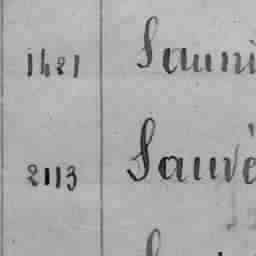 1421 Sauni
2113 Sauvé